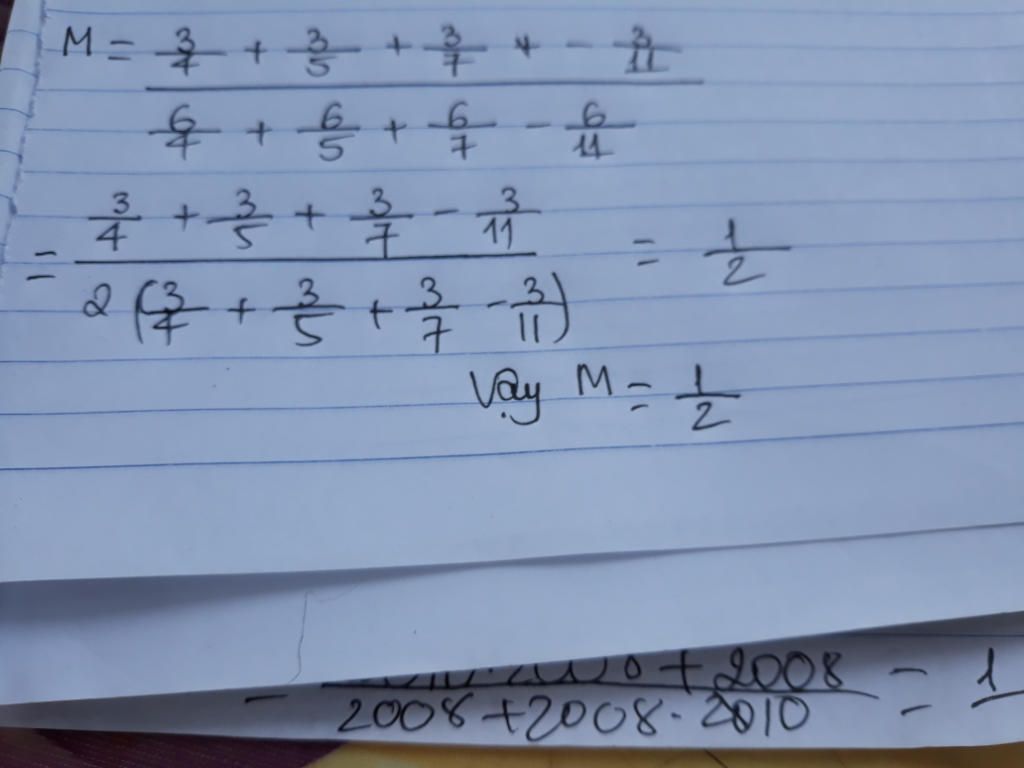 M = 3/4 + 3/5 + 3/7 + - 3/11
6/4 + 6/5 + 6/7 - 6/11
= 3/4 + 3/5 + 3/7 - 3/11 = 1/2
2 (3/4 + 3/5 + 3/7 - 3/11)
Vậy M = 1/2
+ 2008 = 1
2008 + 2008 . 2010